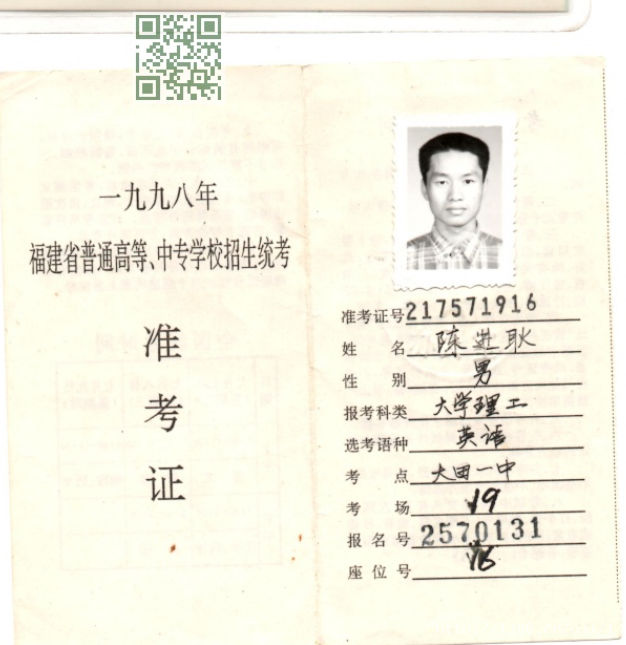 一九九八年
福建省普通高等、中专学校招生统考
准
考
证
准考证号217571916
姓 名 陈进耿
性 别 男
报考科类 大学理工
选考语种 英语
考 点 大田一中
考 场 19
报 名 号 2570131
座 位 号 16